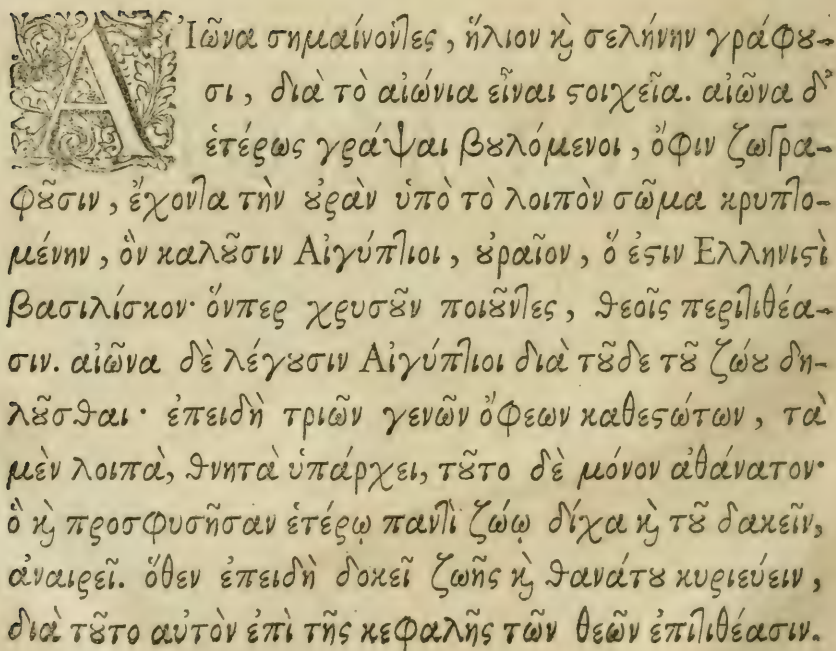 Αἰῶνα σημαίνοντες, ἥλιον ϗ σελήνην γράφȣ-
σι, διὰ τὸ αἰώνια εἶναι ϛοιχεῖα. αἰῶνα δ᾽
ἑτέρως γράψαι βȣλόμενοι, ὄφιν ζωγρα-
φȣ͂σιν, ἔχοντα τὴν ȣ̓ρὰν ὑπὸ τὸ λοιπὸν σῶμα κρυπτο-
μένην, ὃν καλȣ͂σιν Αἰγύπτιοι, ȣ̓ραῖον, ὅ ἐϛιν Ἑλληνιϛὶ
βασιλίσκον· ὅνπερ χρυσȣ͂ν ποιȣ͂ντες, θεοῖς περιτιθέα-
σιν. αἰῶνα δὲ λέγȣσιν Αἰγύπτιοι διὰ τȣ͂δε τȣ͂ ζώȣ δη-
λȣ͂σθαι· ἐπειδὴ τριῶν γενῶν ὄφεων καθεϛώτων, τὰ
μὲν λοιπὰ, θνητὰ ὑπάρχει, τȣ͂το δὲ μόνον ἀθάνατον·
ὃ ϗ προσφυσῆσαν ἑτέρῳ παντὶ ζώῳ δίχα ϗ τȣ͂ δακεῖν,
ἀναιρεῖ. ὅθεν ἐπειδὴ δοκεῖ ζωῆς ϗ θανάτȣ κυριεύειν,
διὰ τȣ͂το αὐτὸν ἐπὶ τῆς κεφαλῆς τῶν θεῶν ἐπιτιθέασιν.